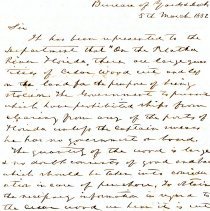 Bureau of Yards & Docks
5th March 1832
Sir
It has been represented to the
Department that "On the
River Florida, there are large quan
tities of Cedar wood cut and left
on the land for the purpose of being
stolen. The Government
which have prohibited ships from
clearing from any of the ports of
Florida unless the Captain swears
he has no government on board.
The quantity of the wood is large
& no doubt consists of good and bad
which should be taken into consider
ation in case of purchase. To obtain
the necessary information in regard to
the Cedar wood